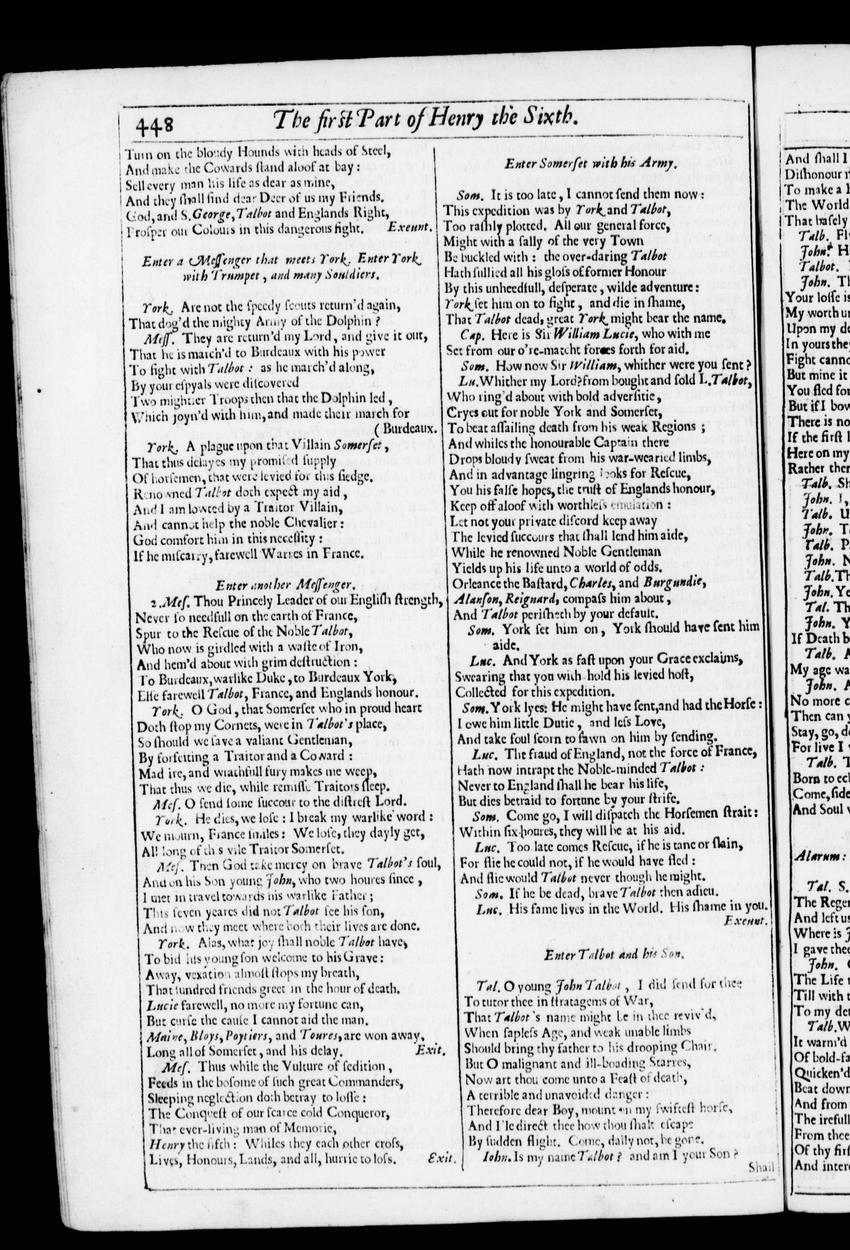 448
The first Part of Henry the Sixth.
Turn on the bloudy Hounds with heads of Steel,
And make the Cowards stand aloof at bay:
Sell every man his life as dear as mine,
And they shall find dear Deer of us my Friends.
God, and S. George, Talbot and Englands Right,
Prosper our Colours in this dangerous fight. Exeunt.
Enter a Messenger that meets York. Enter York
with Trumpet, and many Souldiers.
York. Are not the speedy scouts return'd again,
That dog'd the mighty Army of the Dolphin?
Mess. They are return'd my Lord, and give it out,
That he is march'd to Burdeaux with his power
To fight with Talbot: as he march'd along,
By your espyals were discovered
Two mightier Troops then that the Dolphin led,
Which joyn'd with him, and made their march for
(Burdeaux.
York. A plague upon that Villain Somerset,
That thus delayes my promised supply
Of horsemen, that were levied for this siedge.
Renowned Talbot doth expect my aid,
And I am lowted by a Traitor Villain,
And cannot help the noble Chevalier:
God comfort him in this necessity:
If he miscarry, farewell Warres in France.
Enter another Messenger.
2. Mes. Thou Princely Leader of our English strength,
Never so needfull on the earth of France,
Spur to the Rescue of the Noble Talbot,
Who now is girdled with a waste of Iron,
And hem'd about with grim destruction:
To Burdeaux, warlike Duke, to Burdeaux York,
Else farewell Talbot, France, and Englands honour.
York. O God, that Somerset who in proud heart
Doth stop my Cornets, were in Talbot's place,
So should we save a valiant Gentleman,
By forfeiting a Traitor and a Coward:
Mad ire, and wrathfull fury makes me weep,
That thus we die, while remisse Traitors sleep.
Mes. O send some succour to the distrest Lord.
York. He dies, we lose: I break my warlike word:
We mourn, France smiles: We lose, they dayly get,
All long of this vile Traitor Somerset.
Mes. Then God take mercy on brave Talbot's soul,
And on his Son young John, who two houres since,
I met in travel towards his warlike Father;
This seven yeares did not Talbot see his son,
And now they meet where both their lives are done.
York. Alas, what joy shall noble Talbot have,
To bid his young son welcome to his Grave:
Away, vexation almost stops my breath,
That sundred friends greet in the hour of death.
Lucie farewell, no more my fortune can,
But curse the cause I cannot aid the man.
Maine, Bloys, Poytiers, and Toures, are won away,
Long all of Somerset, and his delay. Exit.
Mes. Thus while the Vulture of sedition,
Feeds in the bosome of such great Commanders,
Sleeping neglection doth betray to losse:
The Conquest of our scarce cold Conqueror,
That ever-living man of Memorie,
Henry the fifth: Whiles they each other cross,
Lives, Honours, Lands, and all, hurrie to loss. Exit.
Enter Somerset with his Army.
Som. It is too late, I cannot send them now:
This expedition was by York and Talbot,
Too rashly plotted. All our general force,
Might with a sally of the very Town
Be buckled with: the over-daring Talbot
Hath sullied all his gloss of former Honour
By this unheedfull, desperate, wilde adventure:
York set him on to fight, and die in shame,
That Talbot dead, great York might bear the name.
Cap. Here is Sir William Lucie, who with me
Set from our o're-matcht forces forth for aid.
Som. How now Sir William, whither were you sent?
Lu. Whither my Lord? from bought and sold L. Talbot,
Who ring'd about with bold adversitie,
Cryes out for noble York and Somerset,
To beat assailing death from his weak Regions;
And whiles the honourable Captain there
Drops bloudy sweat from his war-wearied limbs,
And in advantage lingring looks for Rescue,
You his false hopes, the trust of Englands honour,
Keep off aloof with worthless emulation:
Let not your private discord keep away
The levied succours that shall lend him aide,
While he renowned Noble Gentleman
Yields up his life unto a world of odds.
Orleance the Bastard, Charles, and Burgundie,
Alanson, Reignard, compass him about,
And Talbot perisheth by your default.
Som. York set him on, York should have sent him
aide.
Luc. And York as fast upon your Grace exclaims,
Swearing that you with-hold his levied host,
Collected for this expedition.
Som. York lyes: He might have sent, and had the Horse:
I owe him little Dutie, and less Love,
And take foul scorn to fawn on him by sending.
Luc. The fraud of England, not the force of France,
Hath now intrapt the Noble-minded Talbot:
Never to England shall he bear his life,
But dies betraid to fortune by your strife.
Som. Come go, I will dispatch the Horsemen strait:
Within six houres, they will be at his aid.
Luc. Too late comes Rescue, if he is tane or slain,
For flie he could not, if he would have fled:
And flie would Talbot never though he might.
Som. If he be dead, brave Talbot then adieu.
Luc. His fame lives in the World. His shame in you.
Exeunt.
Enter Talbot and his Son.
Tal. O young John Talbot, I did send for thee
To tutor thee in stratagems of War,
That Talbot's name might be in thee reviv'd,
When sapless Age, and weak unable limbs
Should bring thy father to his drooping Chair.
But O malignant and ill-boading Starres,
Now art thou come unto a Feast of death,
A terrible and unavoided danger:
Therefore dear Boy, mount on my swiftest horse,
And I'le direct thee how thou shalt escape
By sudden flight. Come, dally not, be gone.
John. Is my name Talbot? and am I your Son?
Shall
And shall I
Dishonour
To make a
The World
That basely
Talb.
John.
Talbot.
John.
Your losse is
My worth
Upon my
In yours they
Fight
But mine it
You fled for
But if I bow
There is no
If the first
Here on my
Rather then
Talb.
John.
Talb.
John.
Talb.
John.
Talb.
John.
Tal.
John.
If Death
Talb.
My age
John.
No more
Then can
Stay, go,
For live I
Talb.
Born to
Come, side
And Soul
Alarum:
Tal. S.
The
And left us
Where is
I gave thee
John.
The Life
Till with
To my
Talb.
It warm'd
Of
Quicken'd
Beat down
And from
The irefull
From thee
Of thy
And